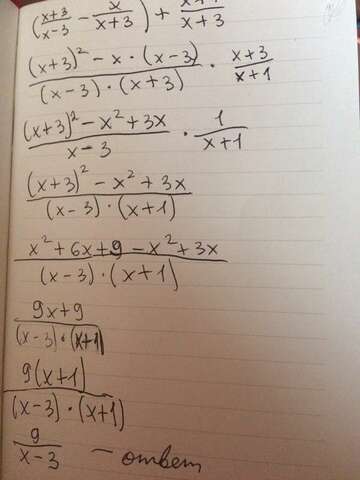 (x+3/x-3 - x/x+3) + x+1/x+3
(x+3)² - x · (x-3)/(x-3) · (x+3) · x+3/x+1
(x+3)² - x² + 3x/x-3 · 1/x+1
(x+3)² - x² + 3x/(x-3) · (x+1)
x² + 6x + 9 - x² + 3x/(x-3) · (x+1)
9x+9/(x-3) · (x+1)
9(x+1)/(x-3) · (x+1)
9/x-3 - ответ